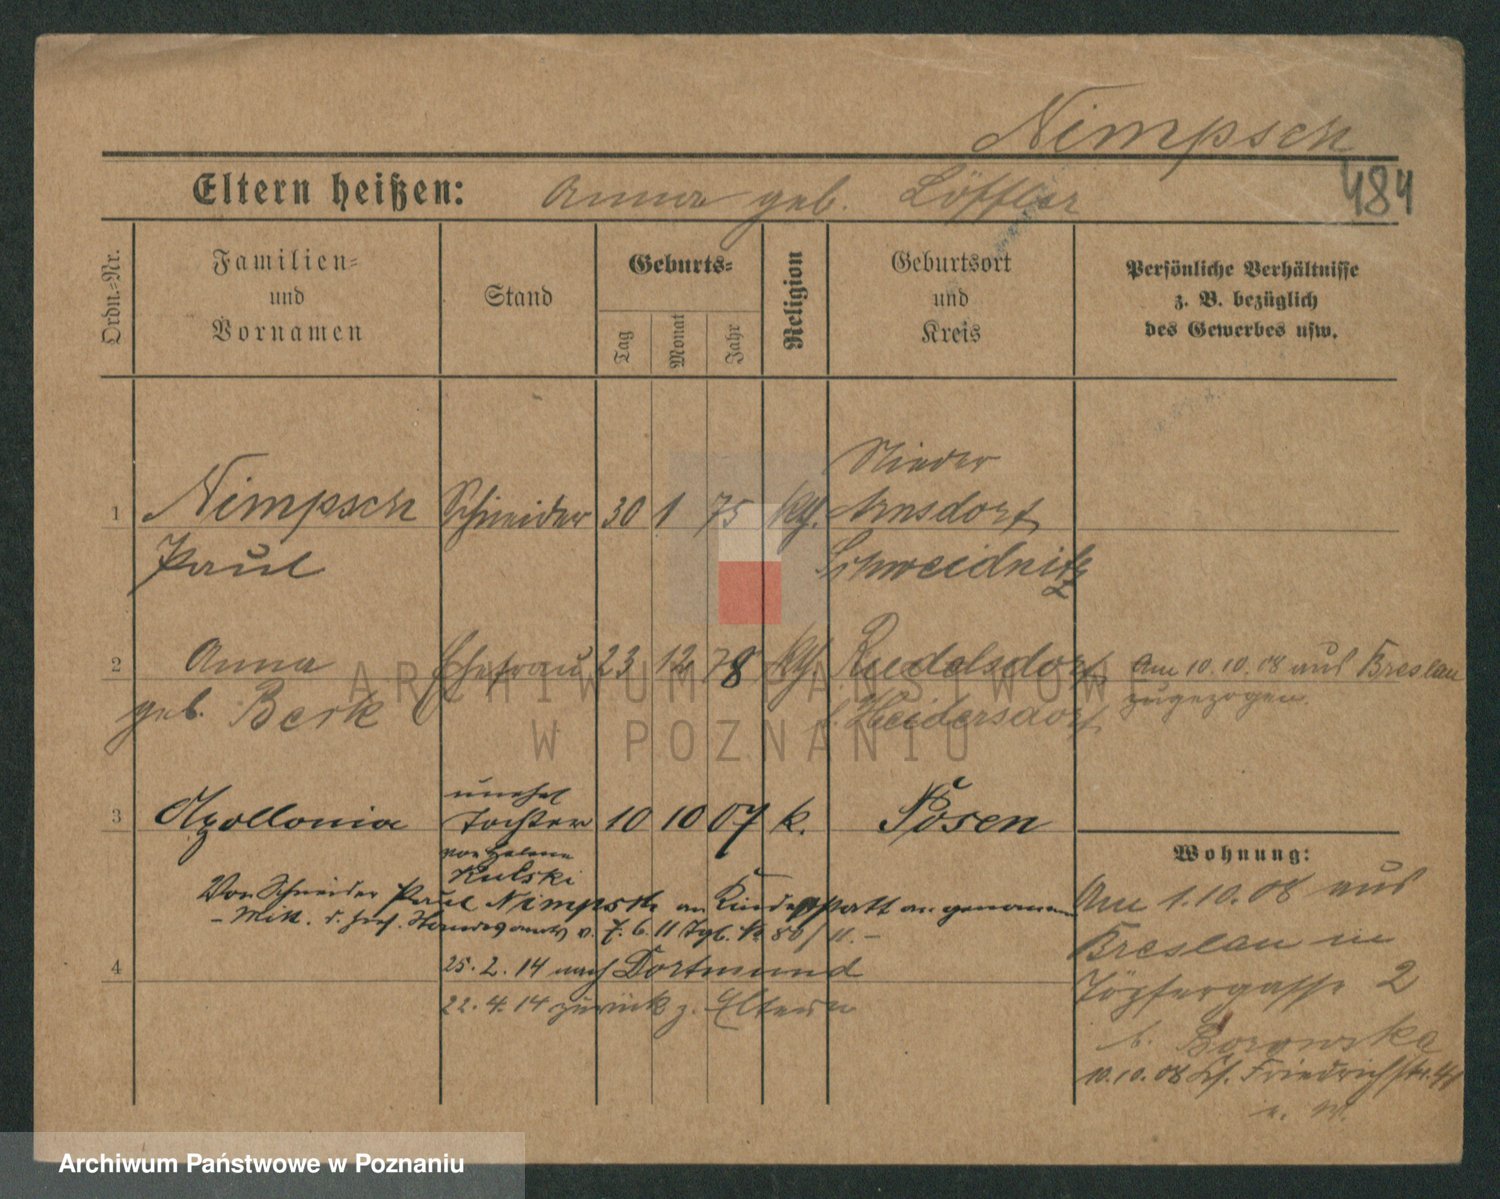 Nimpsch
484
Eltern heißen: Anna geb. Löffler
Ordn.-Nr.
Familien-
und
Vornamen
Stand
Geburts-
Tag
Monat
Jahr
Religion
Geburtsort
und
Kreis
Persönliche Verhältnisse
z. B. bezüglich
des Gewerbes usw.
Nieder
1 Nimpsch Schneider 30 1 75 kth. Arnsdorf
Paul Schweidnitz
2 Anna Ehefrau 23 12 78 kth. Rudelsdorf Am 10.10.08 aus Breslau
geb. Berk Heidersdorf zugezogen.
unehel
3 Apollonia Tochter 10 10 07 k. Posen
von Helene
Kulski
Wohnung:
Von Schneider Paul Nimpsch an Kindesstatt angenommen
- Mitt. d. v. 7. 6. 11 Tgb. No 80/11. -
4 25. 2. 14 nach Dortmund
22. 4. 14 zurück z. Eltern
Am 1.10.08 aus
Breslau in
Töpfergasse 2
b. Borowska
10.10.08 Friedrichstr.
u. W.
ARCHIWUM PAŃSTWOWE
W POZNANIU
Archiwum Państwowe w Poznaniu